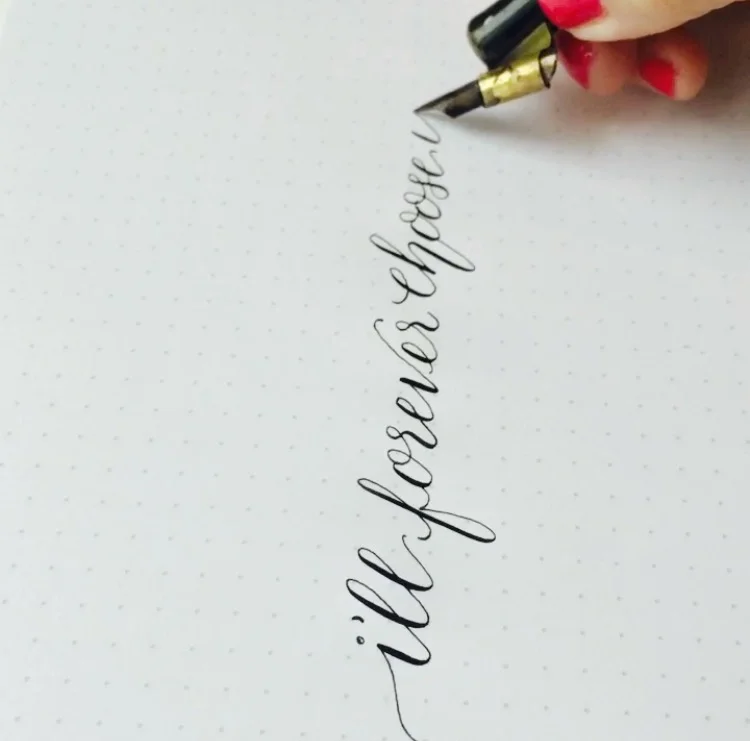 i'll forever choose